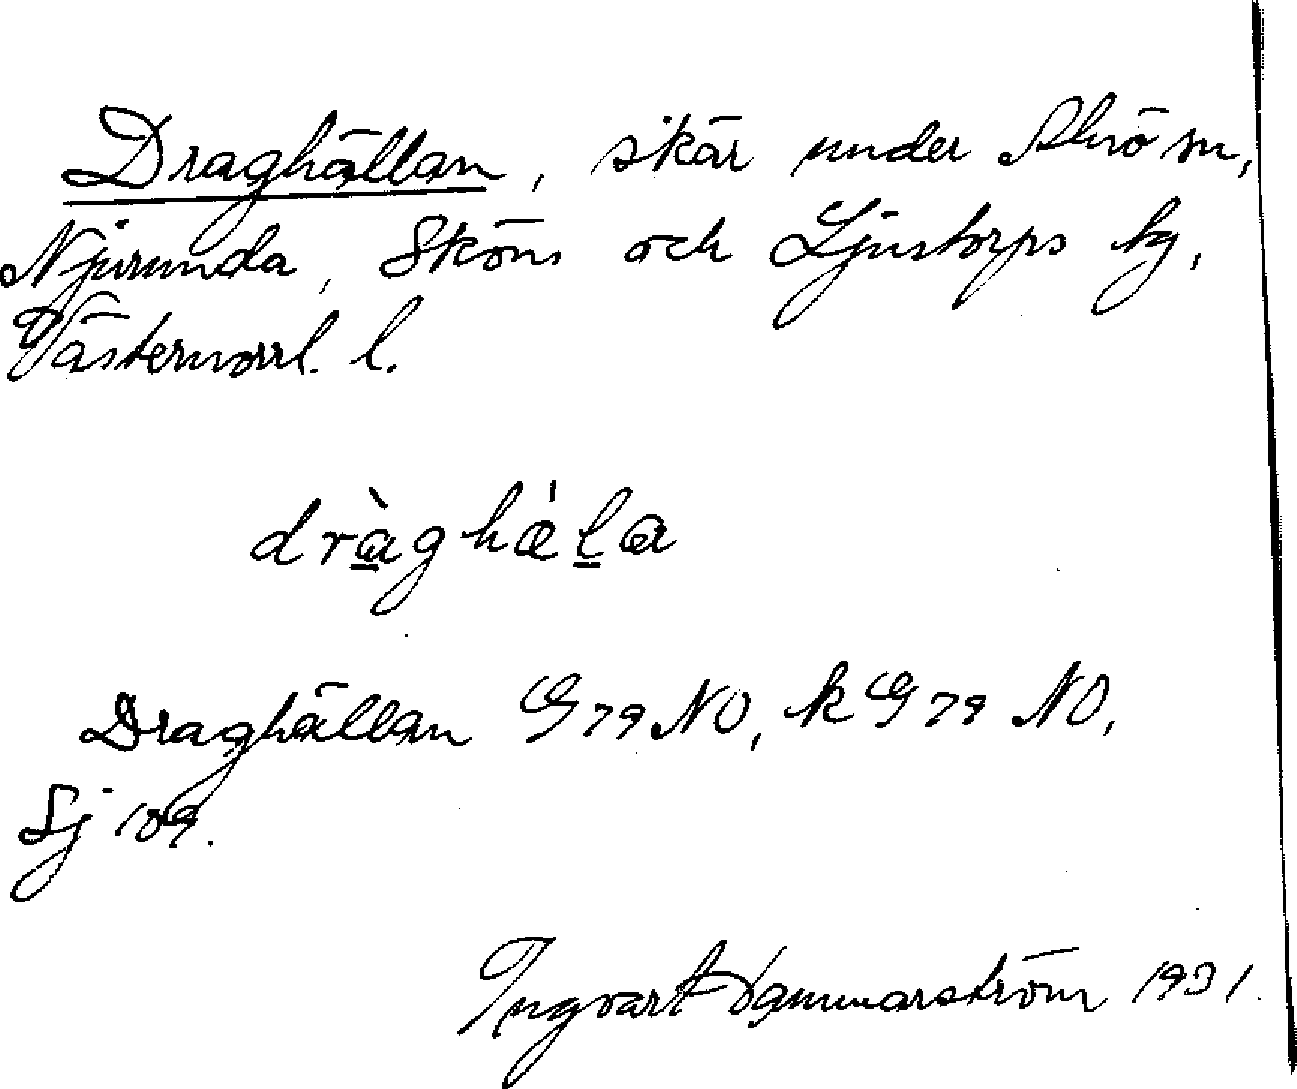 Draghällan, skär under Alnö sn,
Njurunda, Sköns och Ljustorps tg,
Västernorrl. l.
dràghæ̀la
Draghällan G 79 NO, k G 79 NO,
Sj 109.
Ingvart Hammarström 1931.